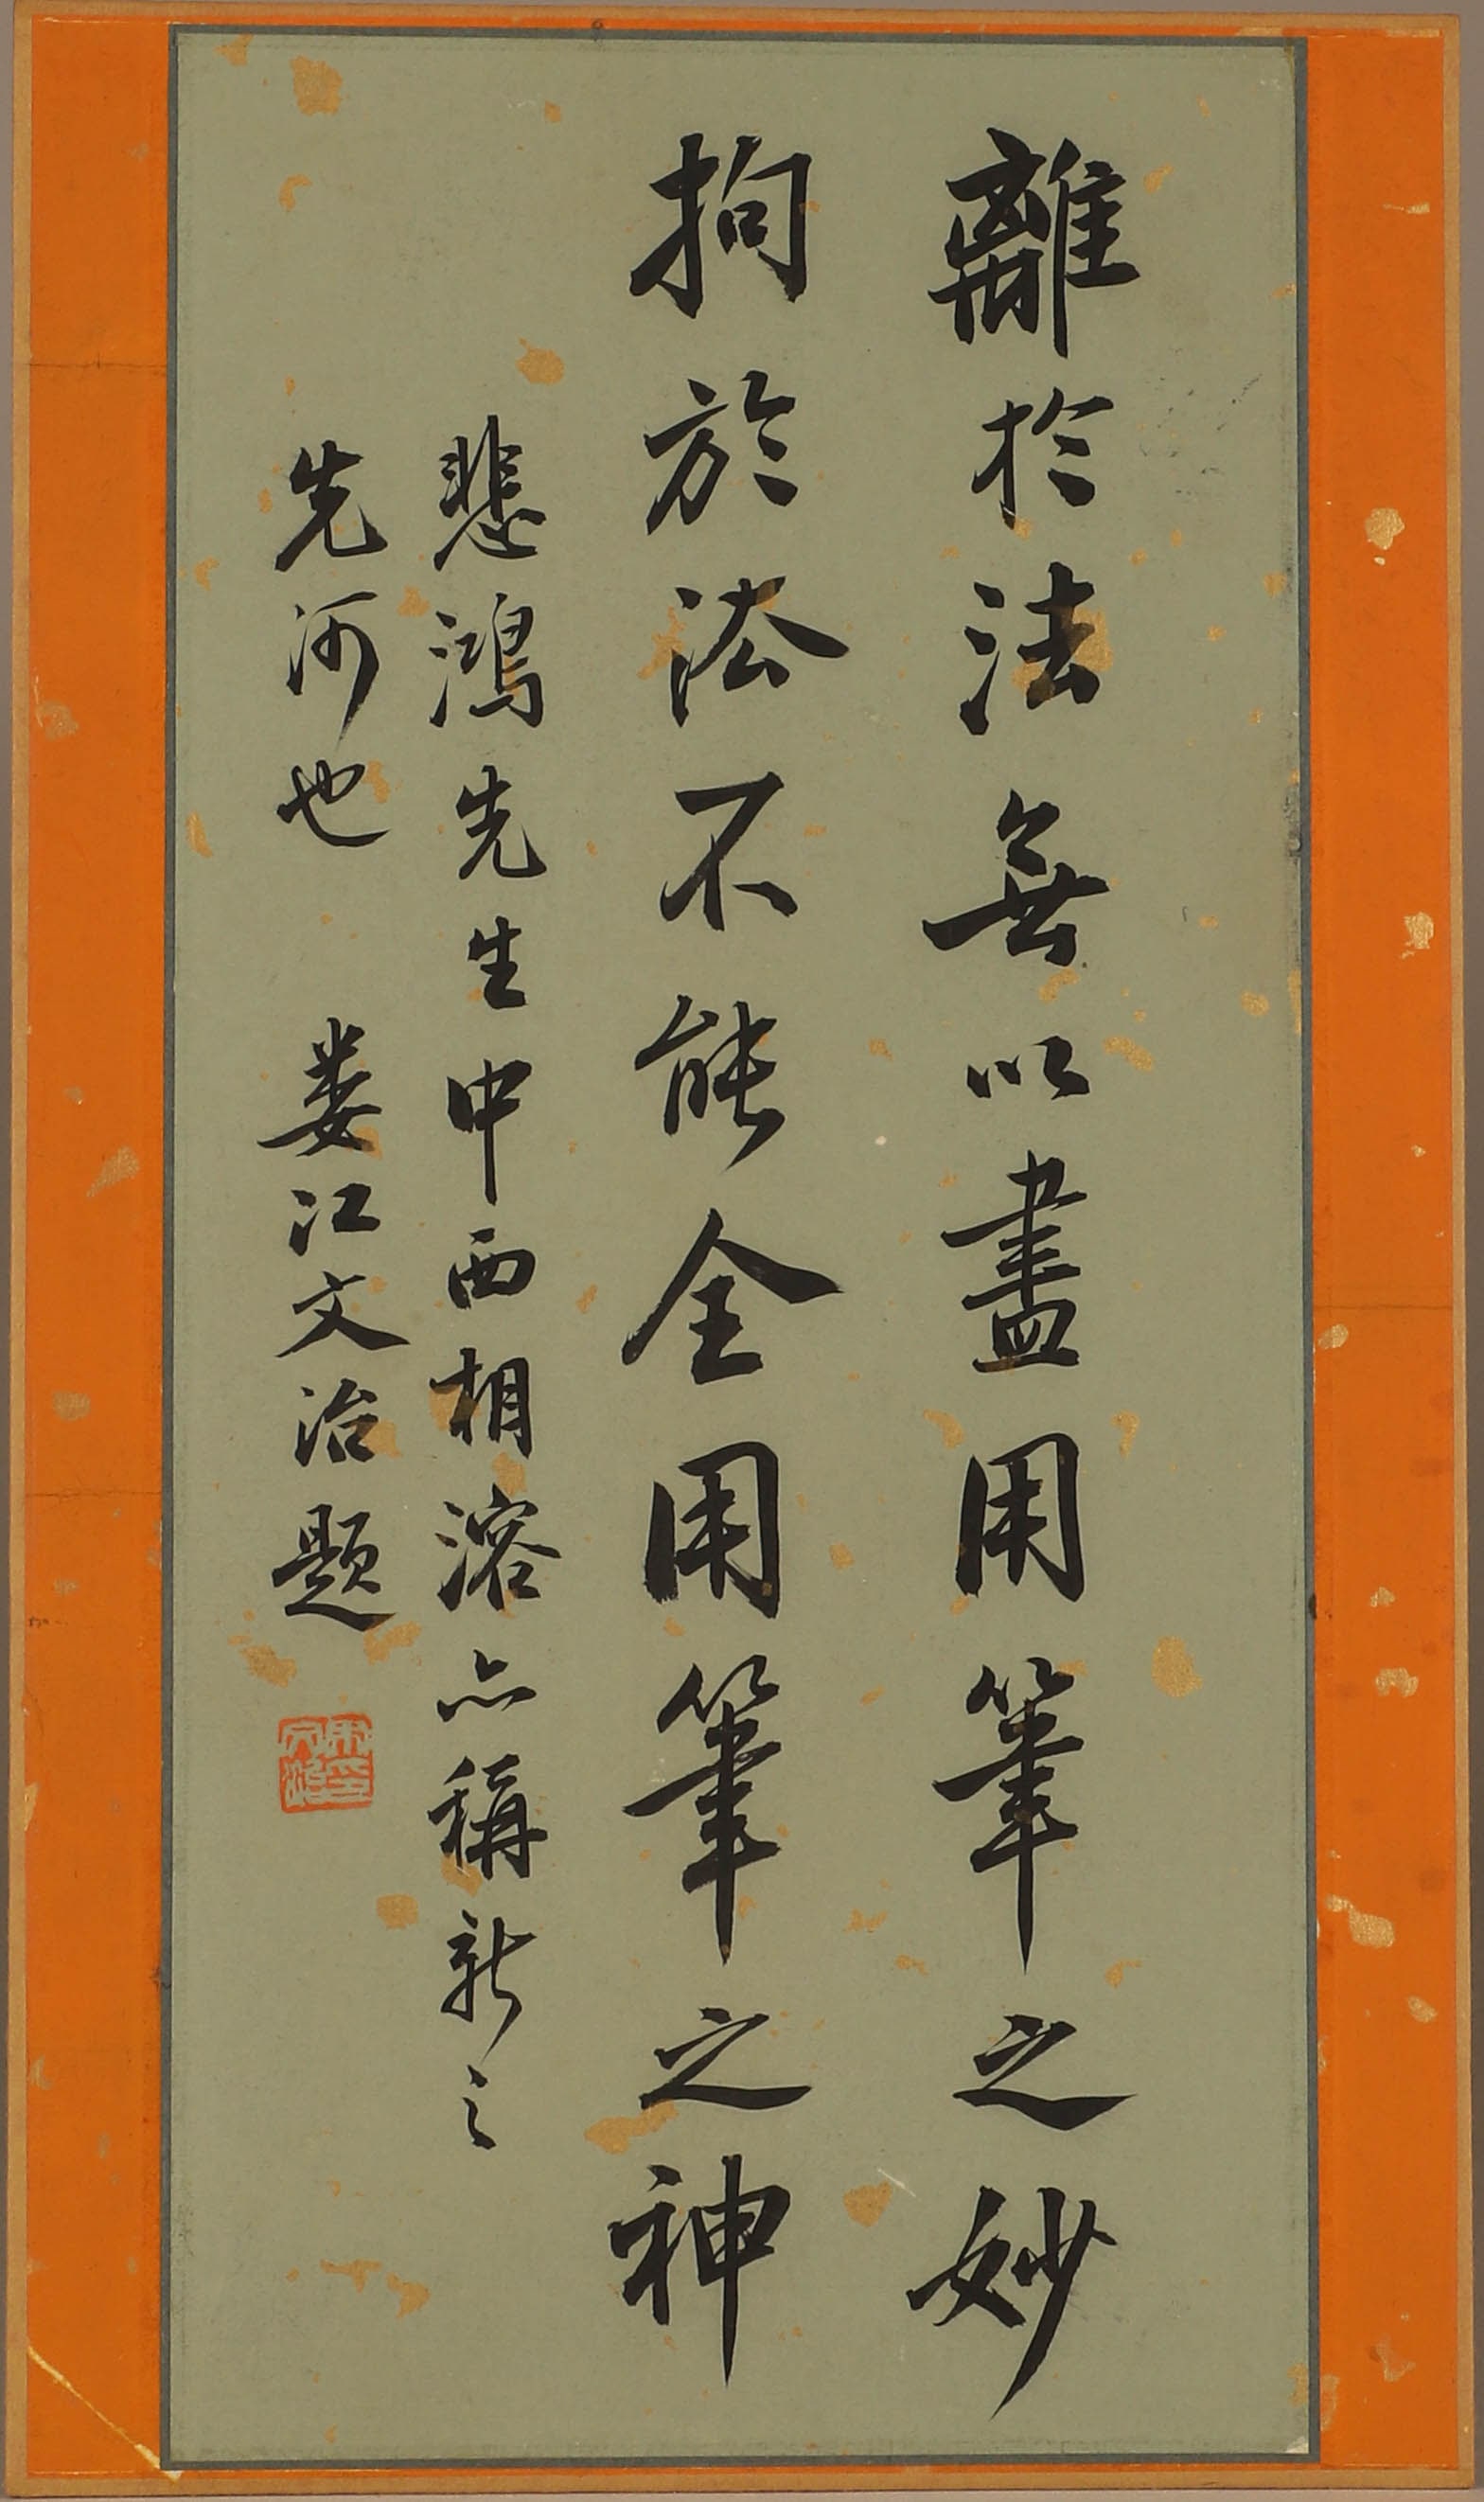 離於法無以盡用筆之妙
拘於法不能全用筆之神
悲鴻先生中西相溶亦稱新之
先河也 婁江文治題
宋文治印